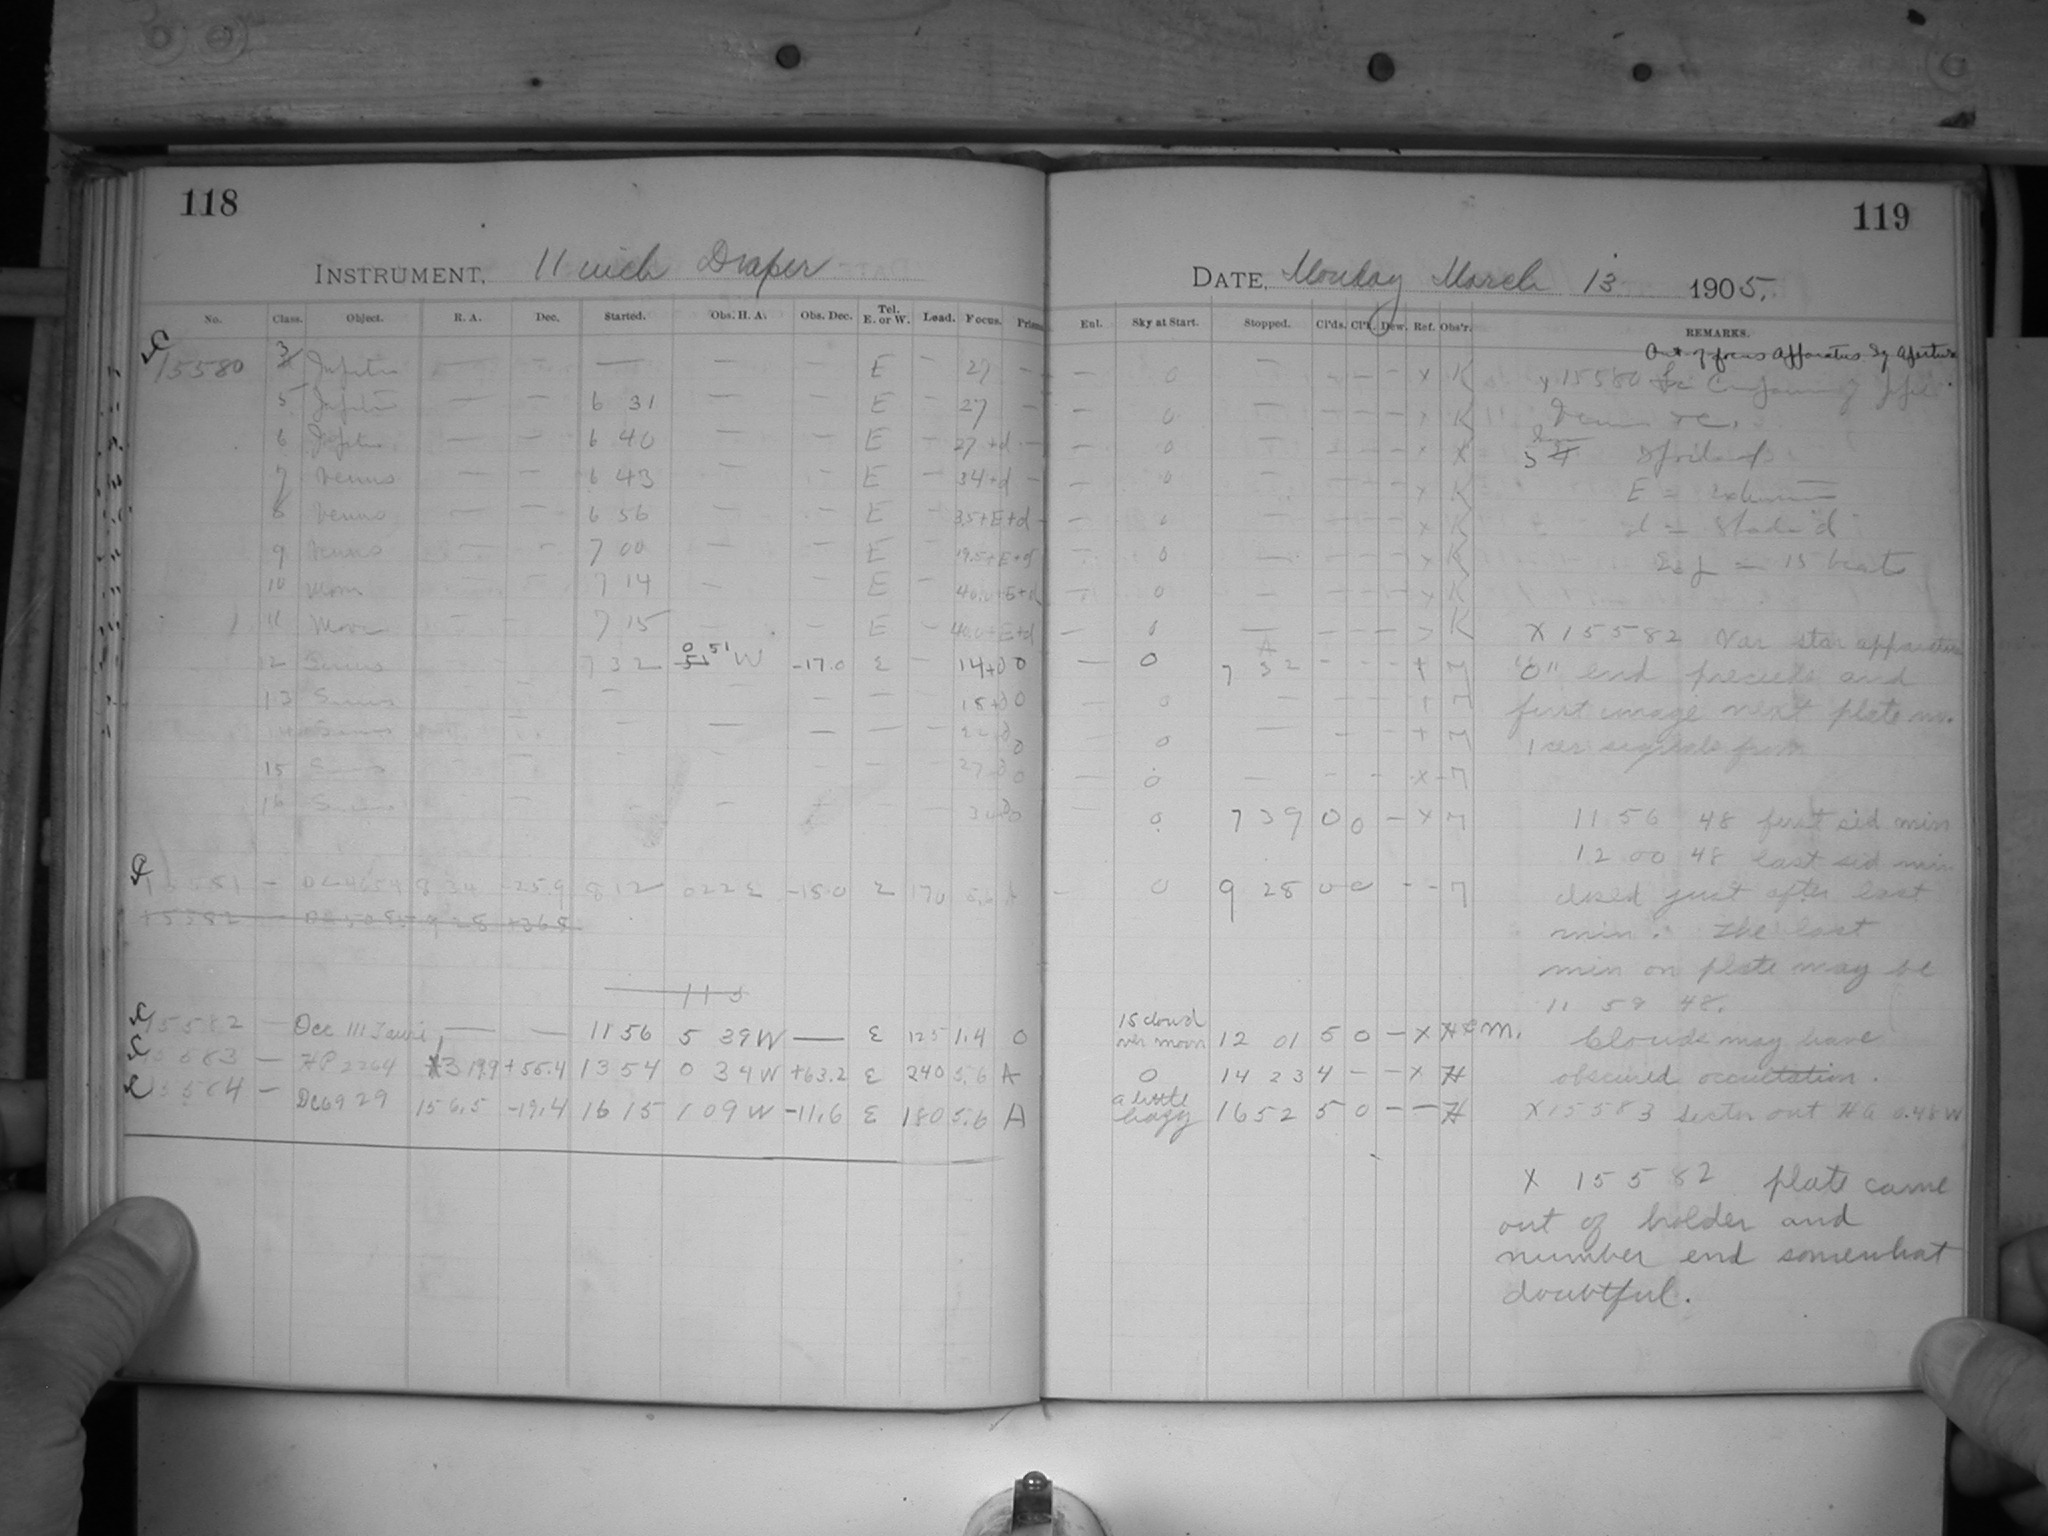 118
INSTRUMENT, 11 inch Draper
No. Class. Object. R. A. Dec. Started. Obs. H. A. Obs. Dec. Tel. E. or W. Load. Focus. Prism
15580 3 Jupiter — — — — — E — 27 —
5 Jupiter — — 6 31 — — E — 27 —
6 Jupiter — — 6 40 — — E — 27 + d —
7 Venus — — 6 43 — — E — 34 + d —
8 Venus — — 6 56 — — E — 35 + E + d -
9 Venus — — 7 00 — — E — 19.5 + E + d
10 Moon — — 7 14 — — E —
11 Moon — — 7 15 — — E —
12 Sirius 7 32 0 51 W -17.0 E — 14+0 0
13 Sirius — — — — — 18+0 0
14 Sirius — — — — —
15 Sirius — — 27
16 Sirius — — —
15581 — DC4654 8 34 -25.9 8 12 0 22 E -18.0 E 170 5.6 A
15582 — DC5085 9 28 +36.8
11 5
15582 — Occ 111 Tauri — — 11 56 5 39 W — E 125 1.4 O
15583 — HP 2264 13 19.9 +55.4 13 54 0 34 W +63.2 E 240 5.6 A
15584 — DC6929 15 6.5 -19.4 16 15 1 09 W -11.6 E 180 5.6 A
119
DATE, Monday March 13 1905.
Enl. Sky at Start. Stopped. Cl'ds. Cl'k. Dew. Ref. Obs'r. REMARKS.
— 0 — - - - x K
— 0 — - - - x K
— 0 — - - - x K
— 0 — - - - x K
— 0 — - - - x K
— 0 — - - - x K
— 0 — - - - x K
— 0 — - - - x K
— 0 7 32 - - - + M
— 0 — - - - + M
0 — - - + M
0 — - - x M
0 7 39 0 0 - x M
— 0 9 28 0 0 - - M
15 cloud over moon 12 01 5 0 - x H & M.
0 14 23 4 - - x H
a little hazy 16 52 5 0 - - H
Out of focus apparatus Sq aperture
x 15580 for Comparing Jupi.
Venus &c.
3 spoiled
E = Extension
d = Shade "d"
Exp = 15 beats
X 15582 Var star apparatus
"O" end precedes and
first image next plate no.
1 sec signals from
11 56 48 first sid min
12 00 48 last sid min
closed just after last
min. The last
min on plate may be
11 59 48.
Clouds may have
obscured occultation.
X 15583 sector out HA 0.48 W
X 15582 plate came
out of holder and
number end somewhat
doubtful.